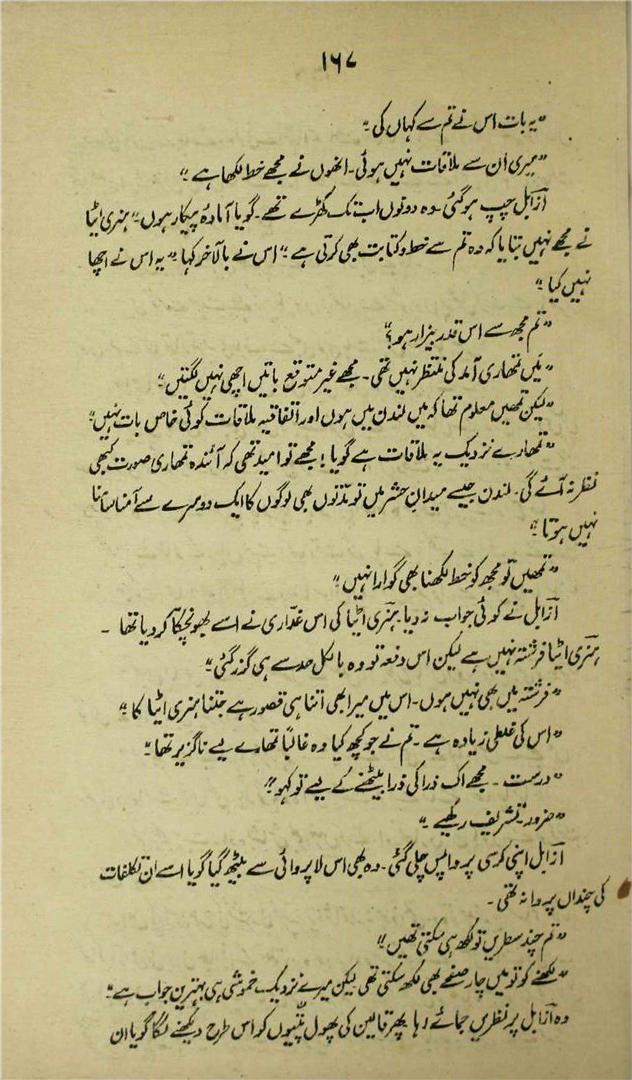 ۱۶۷
"یہ بات اس نے تم سے کہاں کی"
"میری ان سے ملاقات نہیں ہوئی۔ انھوں نے مجھے خط لکھا ہے"
آزابل چپ ہو گئی۔ وہ دونوں اب تک کھڑے تھے۔ گویا آمادۂ پیکار ہوں۔ "ہنری اٹیا
نے مجھے نہیں بتایا کہ وہ تم سے خط و کتابت بھی کرتی ہے" اس نے بالآخر کہا "یہ اس نے اچھا
نہیں کیا"
"تم مجھ سے اس قدر بیزار ہو؟"
"میں تمھاری آمد کی منتظر نہیں تھی۔ مجھے غیر متوقع باتیں اچھی نہیں لگتیں"
"لیکن تمھیں معلوم تھا کہ میں لندن میں ہوں اور اتفاقیہ ملاقات کوئی خاص بات نہیں"
"تمھارے نزدیک یہ ملاقات ہے گویا! مجھے تو امید تھی کہ آئندہ تمھاری صورت کبھی
نظر نہ آئے گی۔ لندن جیسے میدانِ حشر میں تو مدتوں بھی لوگوں کا ایک دوسرے سے آمنا سامنا
نہیں ہوتا"
"تمھیں تو مجھ کو خط لکھنا بھی گوارا نہیں"
آزابل نے کوئی جواب نہ دیا۔ ہنری اٹیا کی اس غدّاری نے اسے بھونچکّا کر دیا تھا۔
ہنری اٹیا فرشتہ نہیں ہے لیکن اس دفعہ تو وہ بالکل حد سے ہی گزر گئی"
"فرشتہ میں بھی نہیں ہوں۔ اس میں میرا بھی اتنا ہی قصور ہے جتنا ہنری اٹیا کا"
"اس کی غلطی زیادہ ہے۔ تم نے جو کچھ کیا وہ غالباً تمھارے لیے ناگزیر تھا"
"درست۔ مجھے اک ذرا کی ذرا بیٹھنے کے لیے تو کہو؟"
"ضرور۔ تشریف رکھیے"
آزابل اپنی کرسی پر واپس چلی گئی۔ وہ بھی اس لاپروائی سے بیٹھ گیا گویا اسے ان تکلفات
کی چنداں پروا نہ تھی۔
"تم چند سطریں تو لکھ ہی سکتی تھیں"
"لکھنے کو تو میں چار صفحے بھی لکھ سکتی تھی لیکن میرے نزدیک خموشی ہی بہترین جواب ہے"
وہ آزابل پر نظریں جمائے رہا پھر قالین کی پھول پتّیوں کو اس طرح دیکھنے لگا گویا ان